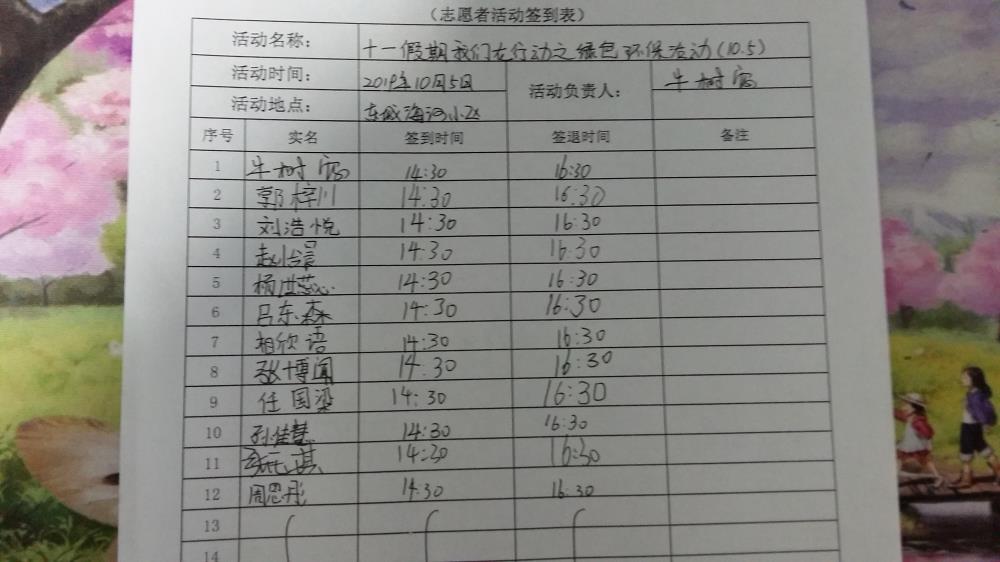 （志愿者活动签到表）
活动名称： 十一假期我们在行动之绿色环保活动(10.5)
活动时间： 2019年10月5日 活动负责人： 牛树
活动地点： 东城海河小区
序号 实名 签到时间 签退时间 备注
1 牛树 14:30 16:30
2 郭梓川 14:30 16:30
3 刘浩悦 14:30 16:30
4 赵 14:30 16:30
5 杨世蕊 14:30 16:30
6 吕东森 14:30 16:30
7 相欣语 14:30 16:30
8 张博闻 14:30 16:30
9 任国梁 14:30 16:30
10 孙佳慧 14:30 16:30
11 14:30 16:30
12 周思彤 14:30 16:30
13
14